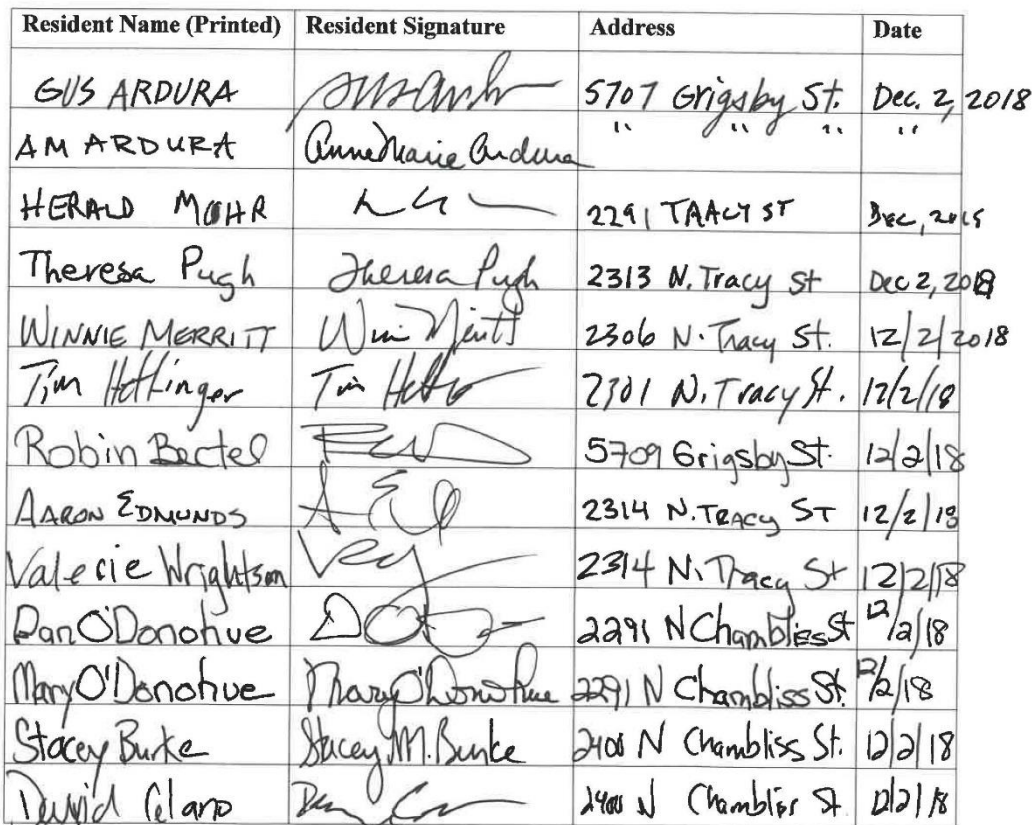 Resident Name (Printed) Resident Signature Address Date
GUS ARDURA 5707 Grigsby St. Dec. 2, 2018
AM ARDURA AnneMarie Ardura " " " "
HERALD MOHR 2291 TRACY ST Dec, 2018
Theresa Pugh Theresa Pugh 2313 N. Tracy St Dec 2, 2018
WINNIE MERRITT Win Merritt 2306 N. Tracy St. 12/2/2018
Tim Hottinger Tim 2301 N. Tracy St. 12/2/18
Robin Bectel 5709 Grigsby St. 12/2/18
AARON EDMUNDS 2314 N. TRACY ST 12/2/18
Valerie Wrightson 2314 N. Tracy St 12/2/18
Dan O'Donohue 2291 N Chambliss St 12/2/18
Mary O'Donohue Mary O'Donohue 2291 N Chambliss St. 12/2/18
Stacey Burke Stacey M. Burke 2400 N Chambliss St. 12/2/18
David Celano 2400 N Chambliss St. 12/2/18